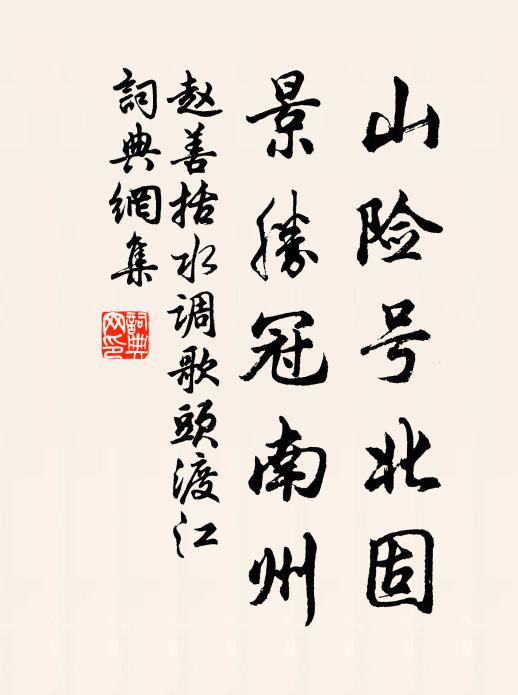 山险号北固
景勝冠南州
赵善括水调歌頭渡江
詞典網集
詞典
网印